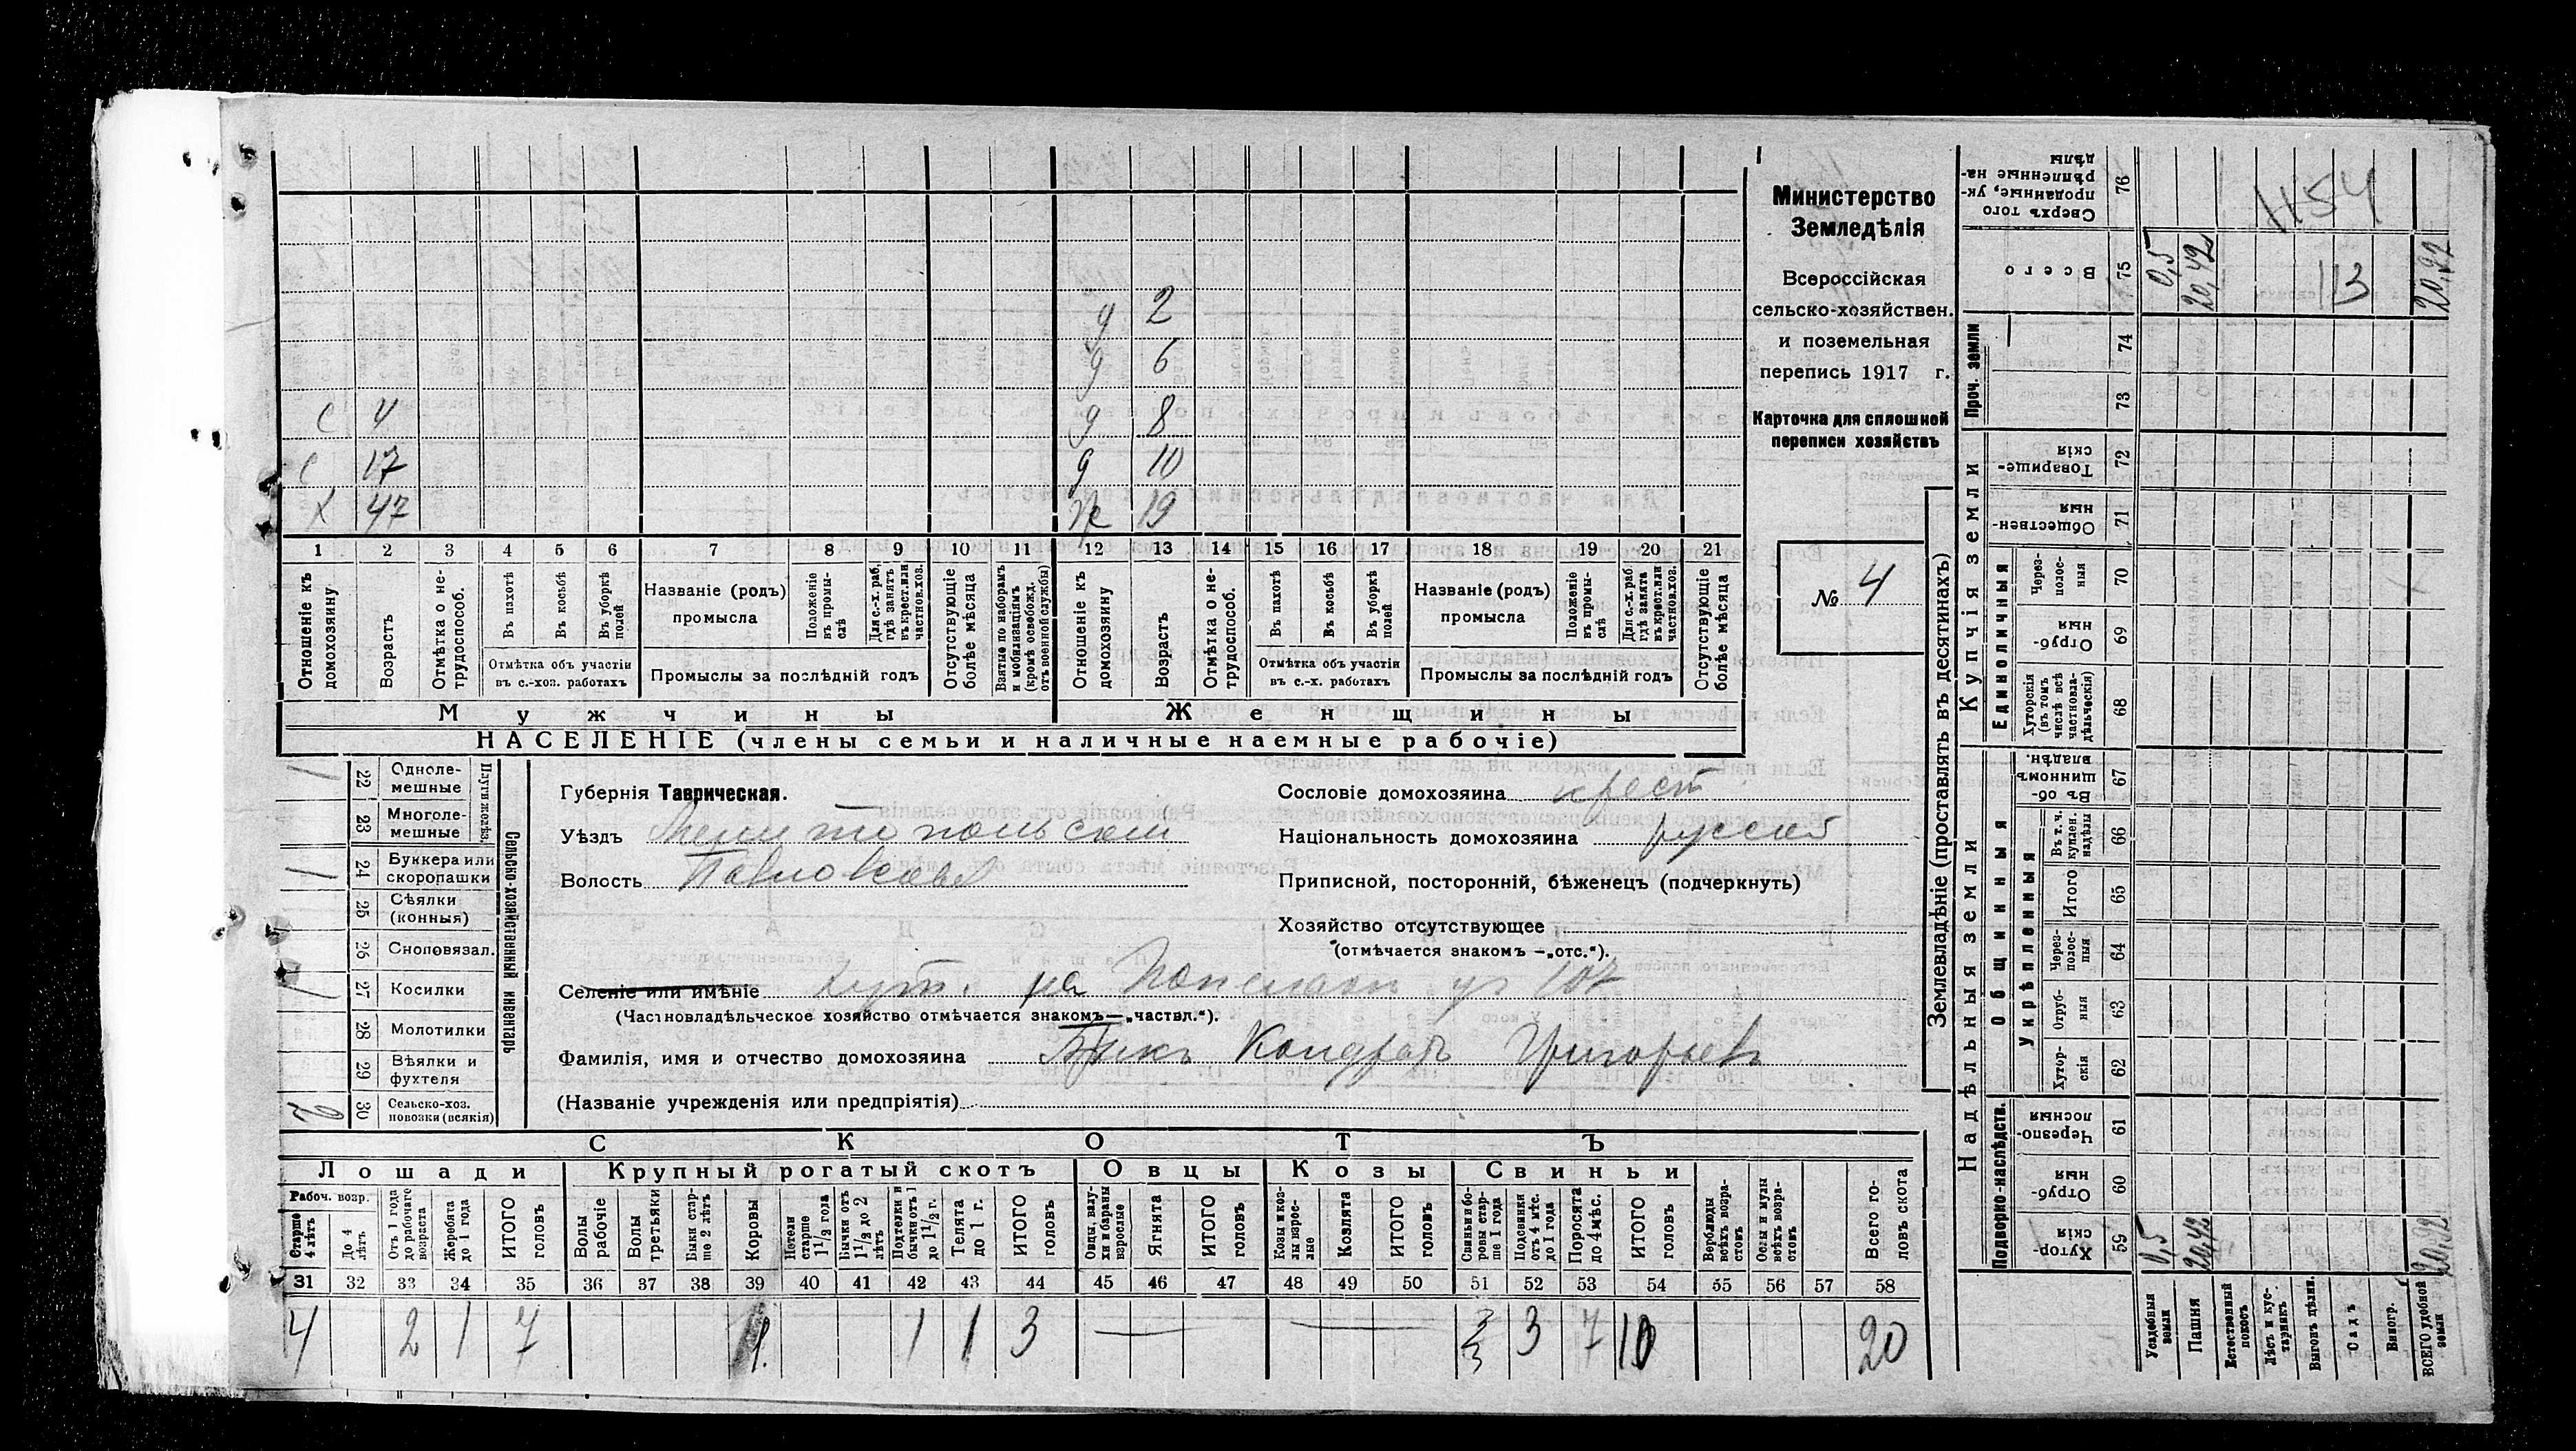 Министерство
Земледѣлія
Всероссійская
сельско-хозяйствен.
и поземельная
перепись 1917 г.
Карточка для сплошной
переписи хозяйствъ
№ 4
д 2
д 6
с 4 д 8
с 17 д 10
х 47 ж 19
1 2 3 4 5 6 7 8 9 10 11 12 13 14 15 16 17 18 19 20 21
Отношеніе къ домохозяину
Возрастъ
Отмѣтка о нетрудоспособ.
Въ пахотѣ
Въ косьбѣ
Въ уборкѣ полей
Отмѣтка объ участіи
въ с.-хоз. работахъ
Названіе (родъ)
промысла
Положеніе въ промыслѣ
Для с.-х. раб. гдѣ занятъ въ крест. или частнов. хоз.
Промыслы за послѣдній годъ
Отсутствующіе болѣе мѣсяца
Взятые по наборамъ и мобилизаціямъ (кромѣ освобожд. отъ военной службы)
Отношеніе къ домохозяину
Возрастъ
Отмѣтка о нетрудоспособ.
Въ пахотѣ
Въ косьбѣ
Въ уборкѣ полей
Отмѣтка объ участіи
въ с.-х. работахъ
Названіе (родъ)
промысла
Положеніе въ промыслѣ
Для с.-х. раб. гдѣ занята въ крест. или частнов. хоз.
Промыслы за послѣдній годъ
Отсутствующіе болѣе мѣсяца
Мужчины Женщины
НАСЕЛЕНІЕ (члены семьи и наличные наемные рабочіе)
Сельско-хозяйственный инвентарь
1 22 Однолемешные
23 Многолемешные
1 24 Буккера или скоропашки
25 Сѣялки (конныя)
26 Сноповязал.
1 27 Косилки
28 Молотилки
29 Вѣялки и фухтеля
2 30 Сельско-хоз. повозки (всякія)
Губернія Таврическая.
Уѣздъ Мелитопольскій
Волость Павловская
Сословіе домохозяина крест
Національность домохозяина русскій
Приписной, посторонній, бѣженецъ (подчеркнуть)
Хозяйство отсутствующее
(отмѣчается знакомъ —„отс.“).
Селеніе или имѣніе хут. на уч 107
(Частновладѣльческое хозяйство отмѣчается знакомъ—„частвл.“).
Фамилія, имя и отчество домохозяина Кондратъ Григорьевъ
(Названіе учрежденія или предпріятія)
СКОТЪ
Лошади Крупный рогатый скотъ Овцы Козы Свиньи
Рабоч. возр.
Старше 4 лѣтъ
До 4 лѣтъ
Отъ 1 года до рабочаго возраста
Жеребята до 1 года
ИТОГО головъ
Волы рабочіе
Волы третьяки
Быки старше 2 лѣтъ
Коровы
Нетели старше 1½ года
Бычки отъ 1½ до 2 лѣтъ
Подтелки и бычки отъ 1 до 1½ г.
Телята до 1 г.
ИТОГО головъ
Овцы, валухи и бараны взрослые
Ягнята
ИТОГО головъ
Козы и козлы взрослые
Козлята
ИТОГО головъ
Свиньи и боровы старше 1 года
Подсвинки отъ 4 мѣс. до 1 года
Поросята до 4 мѣс.
ИТОГО головъ
Верблюды всѣхъ возрастовъ
Ослы и мулы всѣхъ возрастовъ
Всего головъ скота
31 32 33 34 35 36 37 38 39 40 41 42 43 44 45 46 47 48 49 50 51 52 53 54 55 56 57 58
4 2 1 7 1 1 1 3 — — 3 7 10 20
Землевладѣніе (проставлять въ десятинахъ)
Надѣльныя земли
Купчія земли
Проч. земли
Подворно-наслѣдств.
Общинныя
Укрѣпленныя
Единоличныя
Хуторскія 59
Отрубныя 60
Черезполосныя 61
Хуторскія 62
Отрубныя 63
Черезполосныя 64
Итого 65
Въ т. ч. куплен. надѣлы 66
Въ общинномъ владѣн. 67
Хуторскія (въ томъ числѣ всѣ частновладѣльческія) 68
Отрубныя 69
Черезполосныя 70
Общественныя 71
Товарищескія 72
73
74
Всего 75
Сверхъ того проданные, укрѣпленные надѣлы 76
Усадебныя земли 0,5 0,5
Пашня 20,42 20,42
Естественный покосъ
Лѣсъ и кустарникъ
Выгонъ цѣлин.
Садъ
Виногр.
ВСЕГО удобной земли 20,92 20,92
1154
113